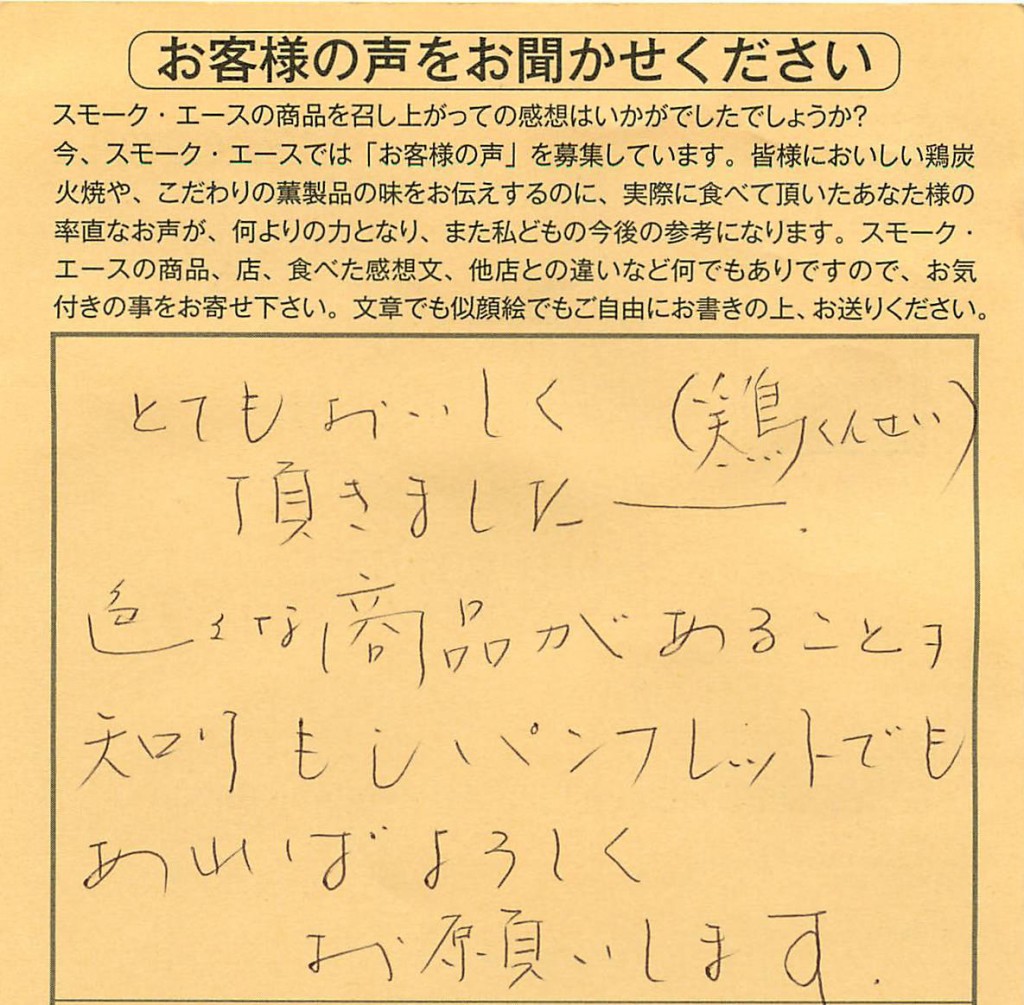 お客様の声をお聞かせください
スモーク・エースの商品を召し上がっての感想はいかがでしたでしょうか?
今、スモーク・エースでは「お客様の声」を募集しています。皆様においしい鶏炭
火焼や、こだわりの薫製品の味をお伝えするのに、実際に食べて頂いたあなた様の
率直なお声が、何よりの力となり、また私どもの今後の参考になります。スモーク・
エースの商品、店、食べた感想文、他店との違いなど何でもありですので、お気
付きの事をお寄せ下さい。文章でも似顔絵でもご自由にお書きの上、お送りください。
とてもおいしく (鶏くんせい)
頂きましたー.
色々な商品があることヲ
知りもしパンフレットでも
あればよろしく
お願いします.